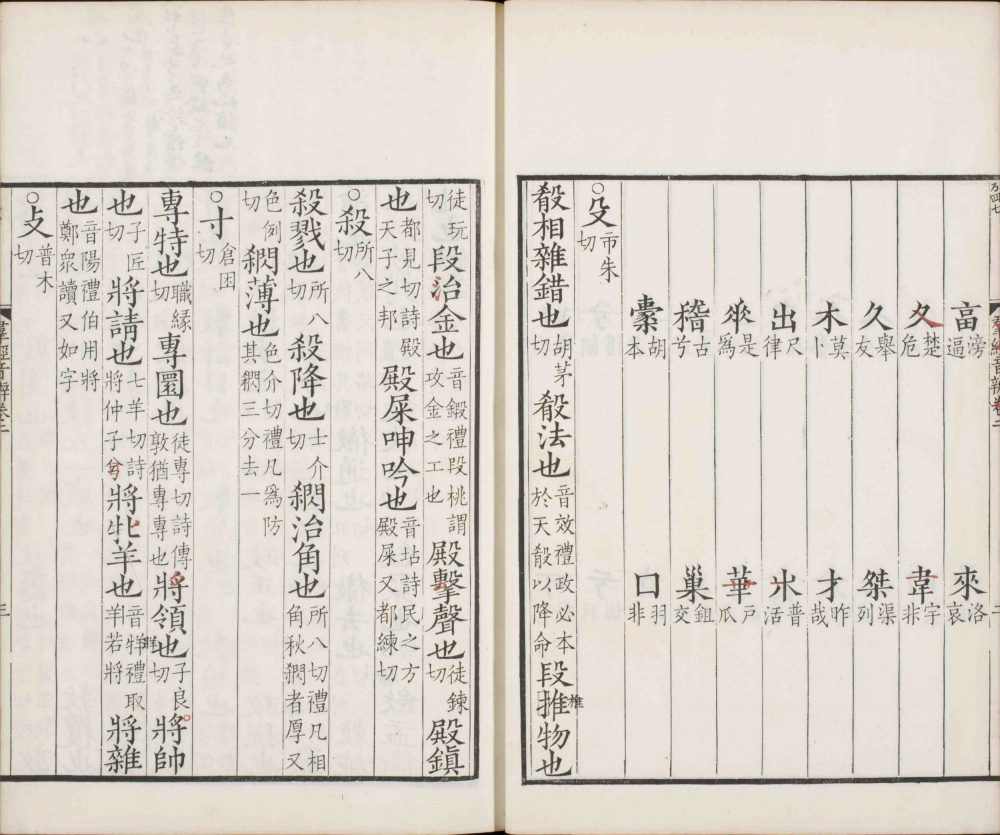 畗滂逼 來洛哀
夊楚危 韋宇非
久舉友 桀渠列
木莫卜 才昨哉
出尺律 𣎵普活
𠂹是爲 華戸瓜
稽古兮 巢鉏交
橐胡本 囗羽非
○殳市朱切
殽相雜錯也胡茅切殽法也音效禮政必本於天殽以降命段推物也
椎
徒玩切段冶金也音鍛禮段桃謂攻金之工也殿擊聲也徒鍊切殿鎮
也都見切詩殿天子之邦殿屎呻吟也音坫詩民之方殿屎又都練切
○殺所八切
殺戮也所八切殺降也士介切閷治角也所八切禮凡相角秋閷者厚又
色例切閷薄也色介切禮凡爲防其閷三分去一
○寸倉困切
專特也職緣切專團也徒專切詩傳敦猶專專也將領也子良切將帥
也子匠切將請也七羊切詩將仲子兮將牝羊也音牂禮取牂若將將雜
牂
也音陽禮伯用將鄭衆讀又如字
○攴普木切
羣經音辨卷二
三